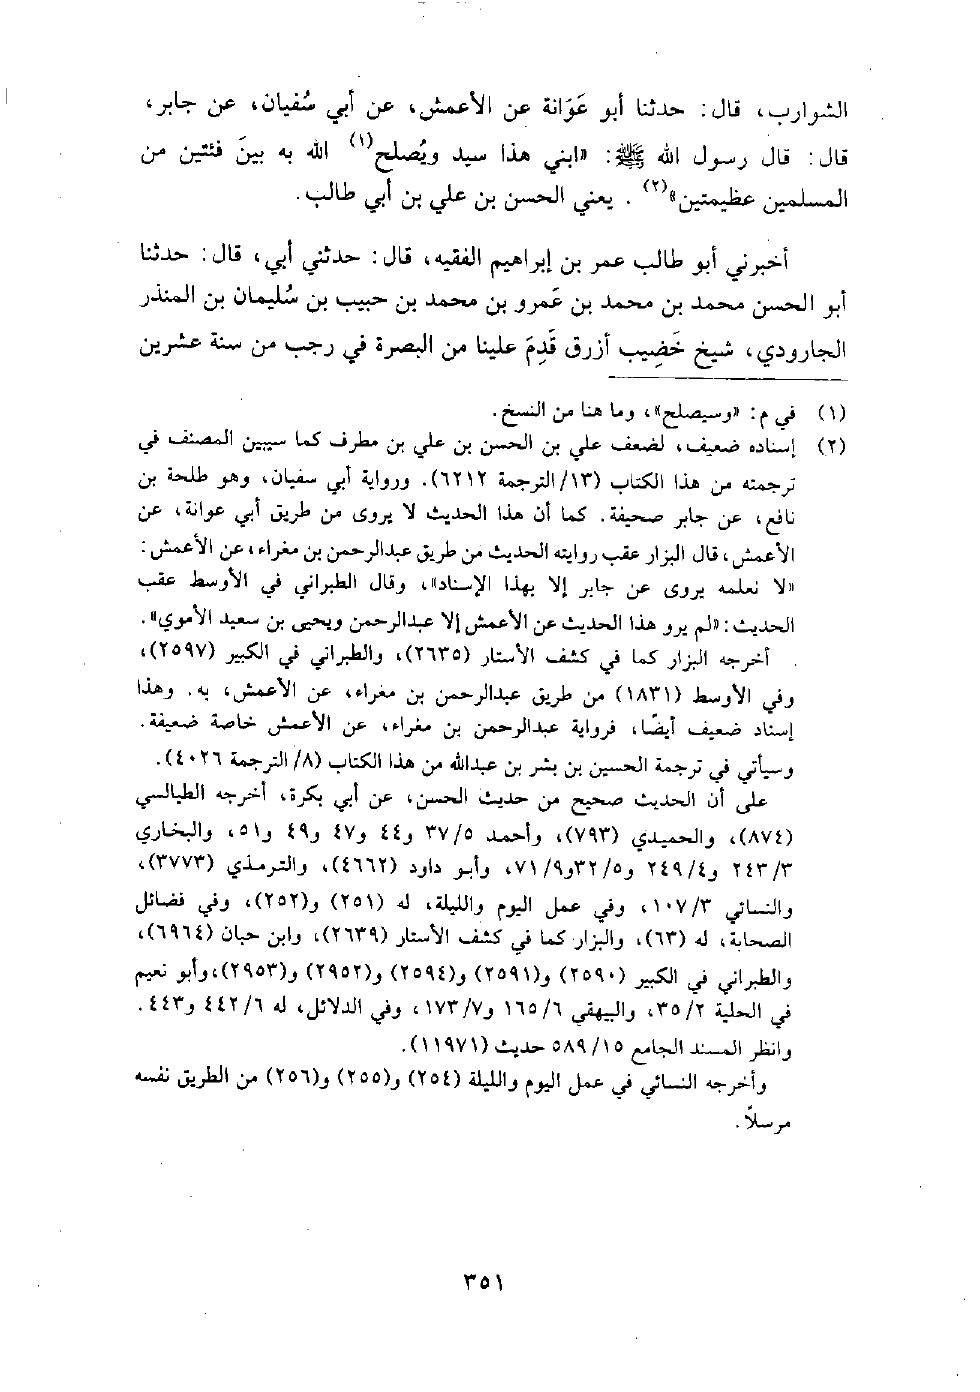 الشوارب، قال: حدثنا أبو عَوَانة عن الأعمش، عن أبي سُفيان، عن جابر،
قال: قال رسول الله ﷺ: «ابني هذا سيد ويُصلح(١) الله به بينَ فئتين من
المسلمين عظيمتين»(٢) . يعني الحسن بن علي بن أبي طالب.
أخبرني أبو طالب عمر بن إبراهيم الفقيه، قال: حدثني أبي، قال: حدثنا
أبو الحسن محمد بن محمد بن عَمرو بن محمد بن حبيب بن سُليمان بن المنذر
الجارودي، شيخ خَضِيب أزرق قَدِمَ علينا من البصرة في رجب من سنة عشرين
(١) في م: «وسيصلح»، وما هنا من النسخ.
(٢) إسناده ضعيف، لضعف علي بن الحسن بن علي بن مطرف كما سيبين المصنف في
ترجمته من هذا الكتاب (١٣/ الترجمة ٦٢١٢). ورواية أبي سفيان، وهو طلحة بن
نافع، عن جابر صحيفة. كما أن هذا الحديث لا يروى من طريق أبي عوانة، عن
الأعمش، قال البزار عقب روايته الحديث من طريق عبدالرحمن بن مغراء، عن الأعمش:
«لا نعلمه يروى عن جابر إلا بهذا الإسناد»، وقال الطبراني في الأوسط عقب
الحديث: «لم يرو هذا الحديث عن الأعمش إلا عبدالرحمن ويحيى بن سعيد الأموي».
أخرجه البزار كما في كشف الأستار (٢٦٣٥)، والطبراني في الكبير (٢٥٩٧)،
وفي الأوسط (١٨٣١) من طريق عبدالرحمن بن مغراء، عن الأعمش، به. وهذا
إسناد ضعيف أيضًا، فرواية عبدالرحمن بن مغراء، عن الأعمش خاصة ضعيفة.
وسيأتي في ترجمة الحسين بن بشر بن عبدالله من هذا الكتاب (٨/ الترجمة ٤٠٢٦).
على أن الحديث صحيح من حديث الحسن، عن أبي بكرة، أخرجه الطيالسي
(٨٧٤)، والحميدي (٧٩٣)، وأحمد ٣٧/٥ و٤٤ و٤٧ و٤٩ و٥١، والبخاري
٢٤٣/٣ و٢٤٩/٤ و٣٢/٥ و٧١/٩، وأبو داود (٤٦٦٢)، والترمذي (٣٧٧٣)،
والنسائي ١٠٧/٣، وفي عمل اليوم والليلة، له (٢٥١) و(٢٥٢)، وفي فضائل
الصحابة، له (٦٣)، والبزار كما في كشف الأستار (٢٦٣٩)، وابن حبان (٦٩٦٤)،
والطبراني في الكبير (٢٥٩٠) و(٢٥٩١) و(٢٥٩٤) و(٢٩٥٢) و(٢٩٥٣)، وأبو نعيم
في الحلية ٣٥/٢، والبيهقي ١٦٥/٦ و١٧٣/٧، وفي الدلائل، له ٤٤٢/٦ و٤٤٣.
وانظر المسند الجامع ٥٨٩/١٥ حديث (١١٩٧١).
وأخرجه النسائي في عمل اليوم والليلة (٢٥٤) و(٢٥٥) و(٢٥٦) من الطريق نفسه
مرسلاً.
٣٥١